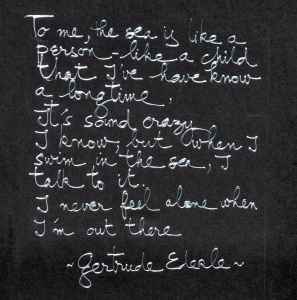 To me, the sea is like a
person - like a child
that I've have know
a long time,
It's sound crazy
I know, but when I
swim in the sea, I
talk to it.
I never feel alone when
I'm out there
~ Gertrude Ederle ~